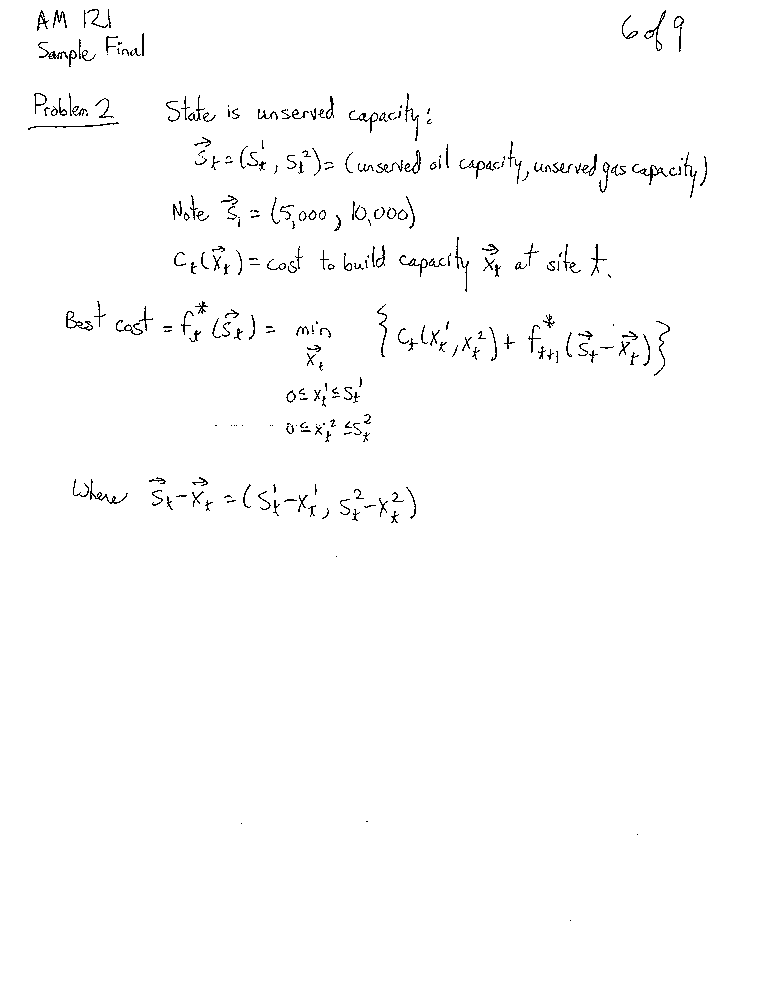 AM 121
6 of 9
Sample Final
Problem 2 State is unserved capacity:
S⃗_t = (S_t^1, S_t^2) = (unserved oil capacity, unserved gas capacity)
Note S⃗_1 = (5,000, 10,000)
C_t(X⃗_t) = cost to build capacity X⃗_t at site t.
Best cost = f_t^*(S⃗_t) = min { C_t(X_t^1, X_t^2) + f_{t+1}^*(S⃗_t - X⃗_t) }
X⃗_t
0 ≤ X_t^1 ≤ S_t^1
0 ≤ X_t^2 ≤ S_t^2
Where S⃗_t - X⃗_t = (S_t^1 - X_t^1, S_t^2 - X_t^2)